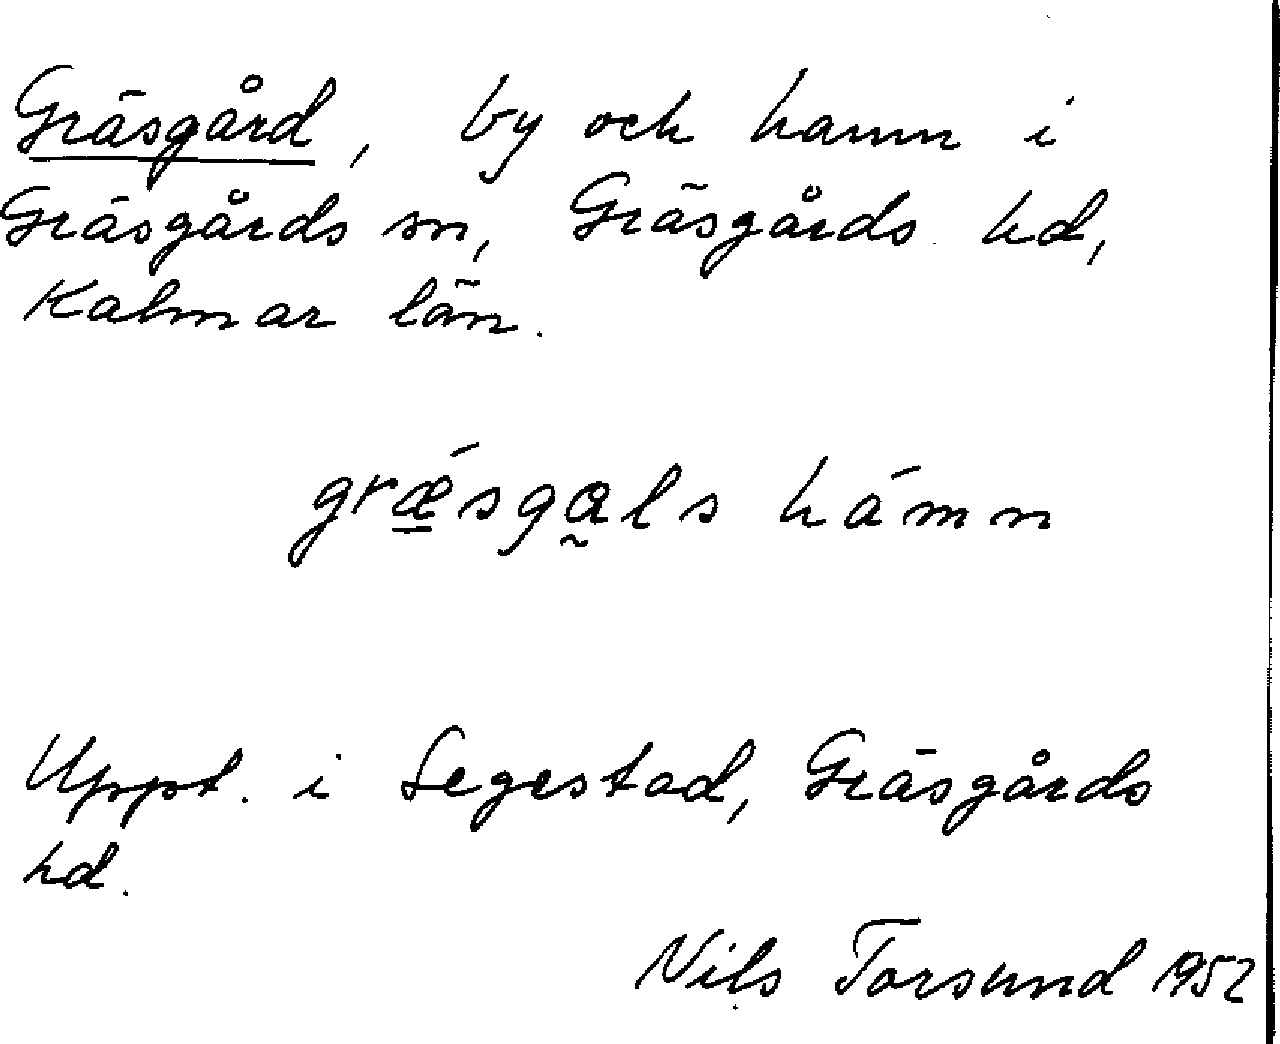 Gräsgård, by och hamn i
Gräsgårds sn, Gräsgårds hd,
Kalmar län.
grǽsgals hámn
Uppt. i Segestad, Gräsgårds
hd.
Nils Torsund 1952